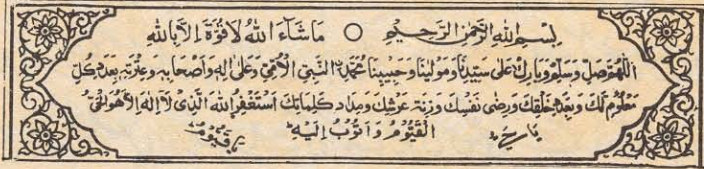 بِسْمِ اللهِ الرَّحْمٰنِ الرَّحِيْمِ ○ مَا شَآءَ اللهُ لَا قُوَّةَ اِلَّا بِاللهِ
اَللّٰهُمَّ صَلِّ وَسَلِّمْ وَبَارِكْ عَلٰى سَيِّدِنَا وَمَوْلٰينَا وَحَبِيْبِنَا مُحَمَّدِ نِ النَّبِيِّ الْاُمِّيِّ وَعَلٰى اٰلِهٖ وَاَصْحَابِهٖ وَعِتْرَتِهٖ بِعَدَدِ كُلِّ
مَعْلُوْمٍ لَّكَ وَبِعَدَدِ خَلْقِكَ وَرِضٰى نَفْسِكَ وَزِنَةِ عَرْشِكَ وَمِدَادِ كَلِمَاتِكَ اَسْتَغْفِرُ اللهَ الَّذِىْ لَا اِلٰهَ اِلَّا هُوَ الْحَىُّ
الْقَيُّوْمُ وَاَتُوْبُ اِلَيْهِ
يَا حَىُّ يَا قَيُّوْمُ